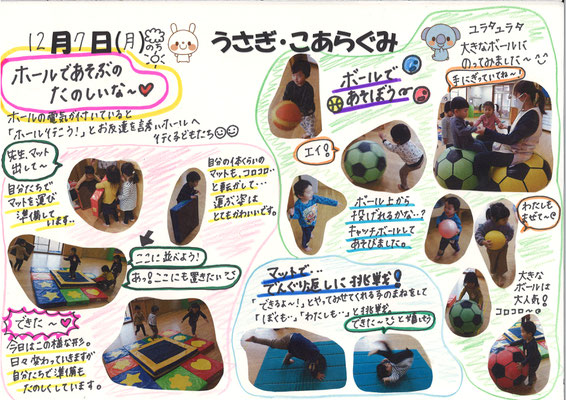 12月7日(月)
のち
うさぎ・こあらぐみ
ホールであそぶの
たのしいな～
ホールの電気が付いていると
「ホール行こう!」とお友達を誘いホールへ
行く子どもたち
先生、マット
出して～
自分たちで
マットを運び
準備して
います。
自分の体くらいの
マットも、コロコロ…
と転がして…
運ぶ姿は
とてもかわいいです。
ここに並べよう!
あっ!ここにも置きたい
できた～
今日はこの様な形。
日々変わっていきますが
自分たちで準備も
たのしくしています。
ボールで
あそぼう
エイ!
ボール上から
投げれるかな…?
キャッチボールして
あそびました。
ユラタュラタ
大きなボールに
のってみました～
手にぎっていてね～!
わたしも
まぜて～
大きな
ボールは
大人気!
コロコロ～
マットで…
でんぐり返しに挑戦!
「できるよ～!」とやってみせてくれる子のまねをして
「ぼくも…」「わたしも…」と挑戦
できた～